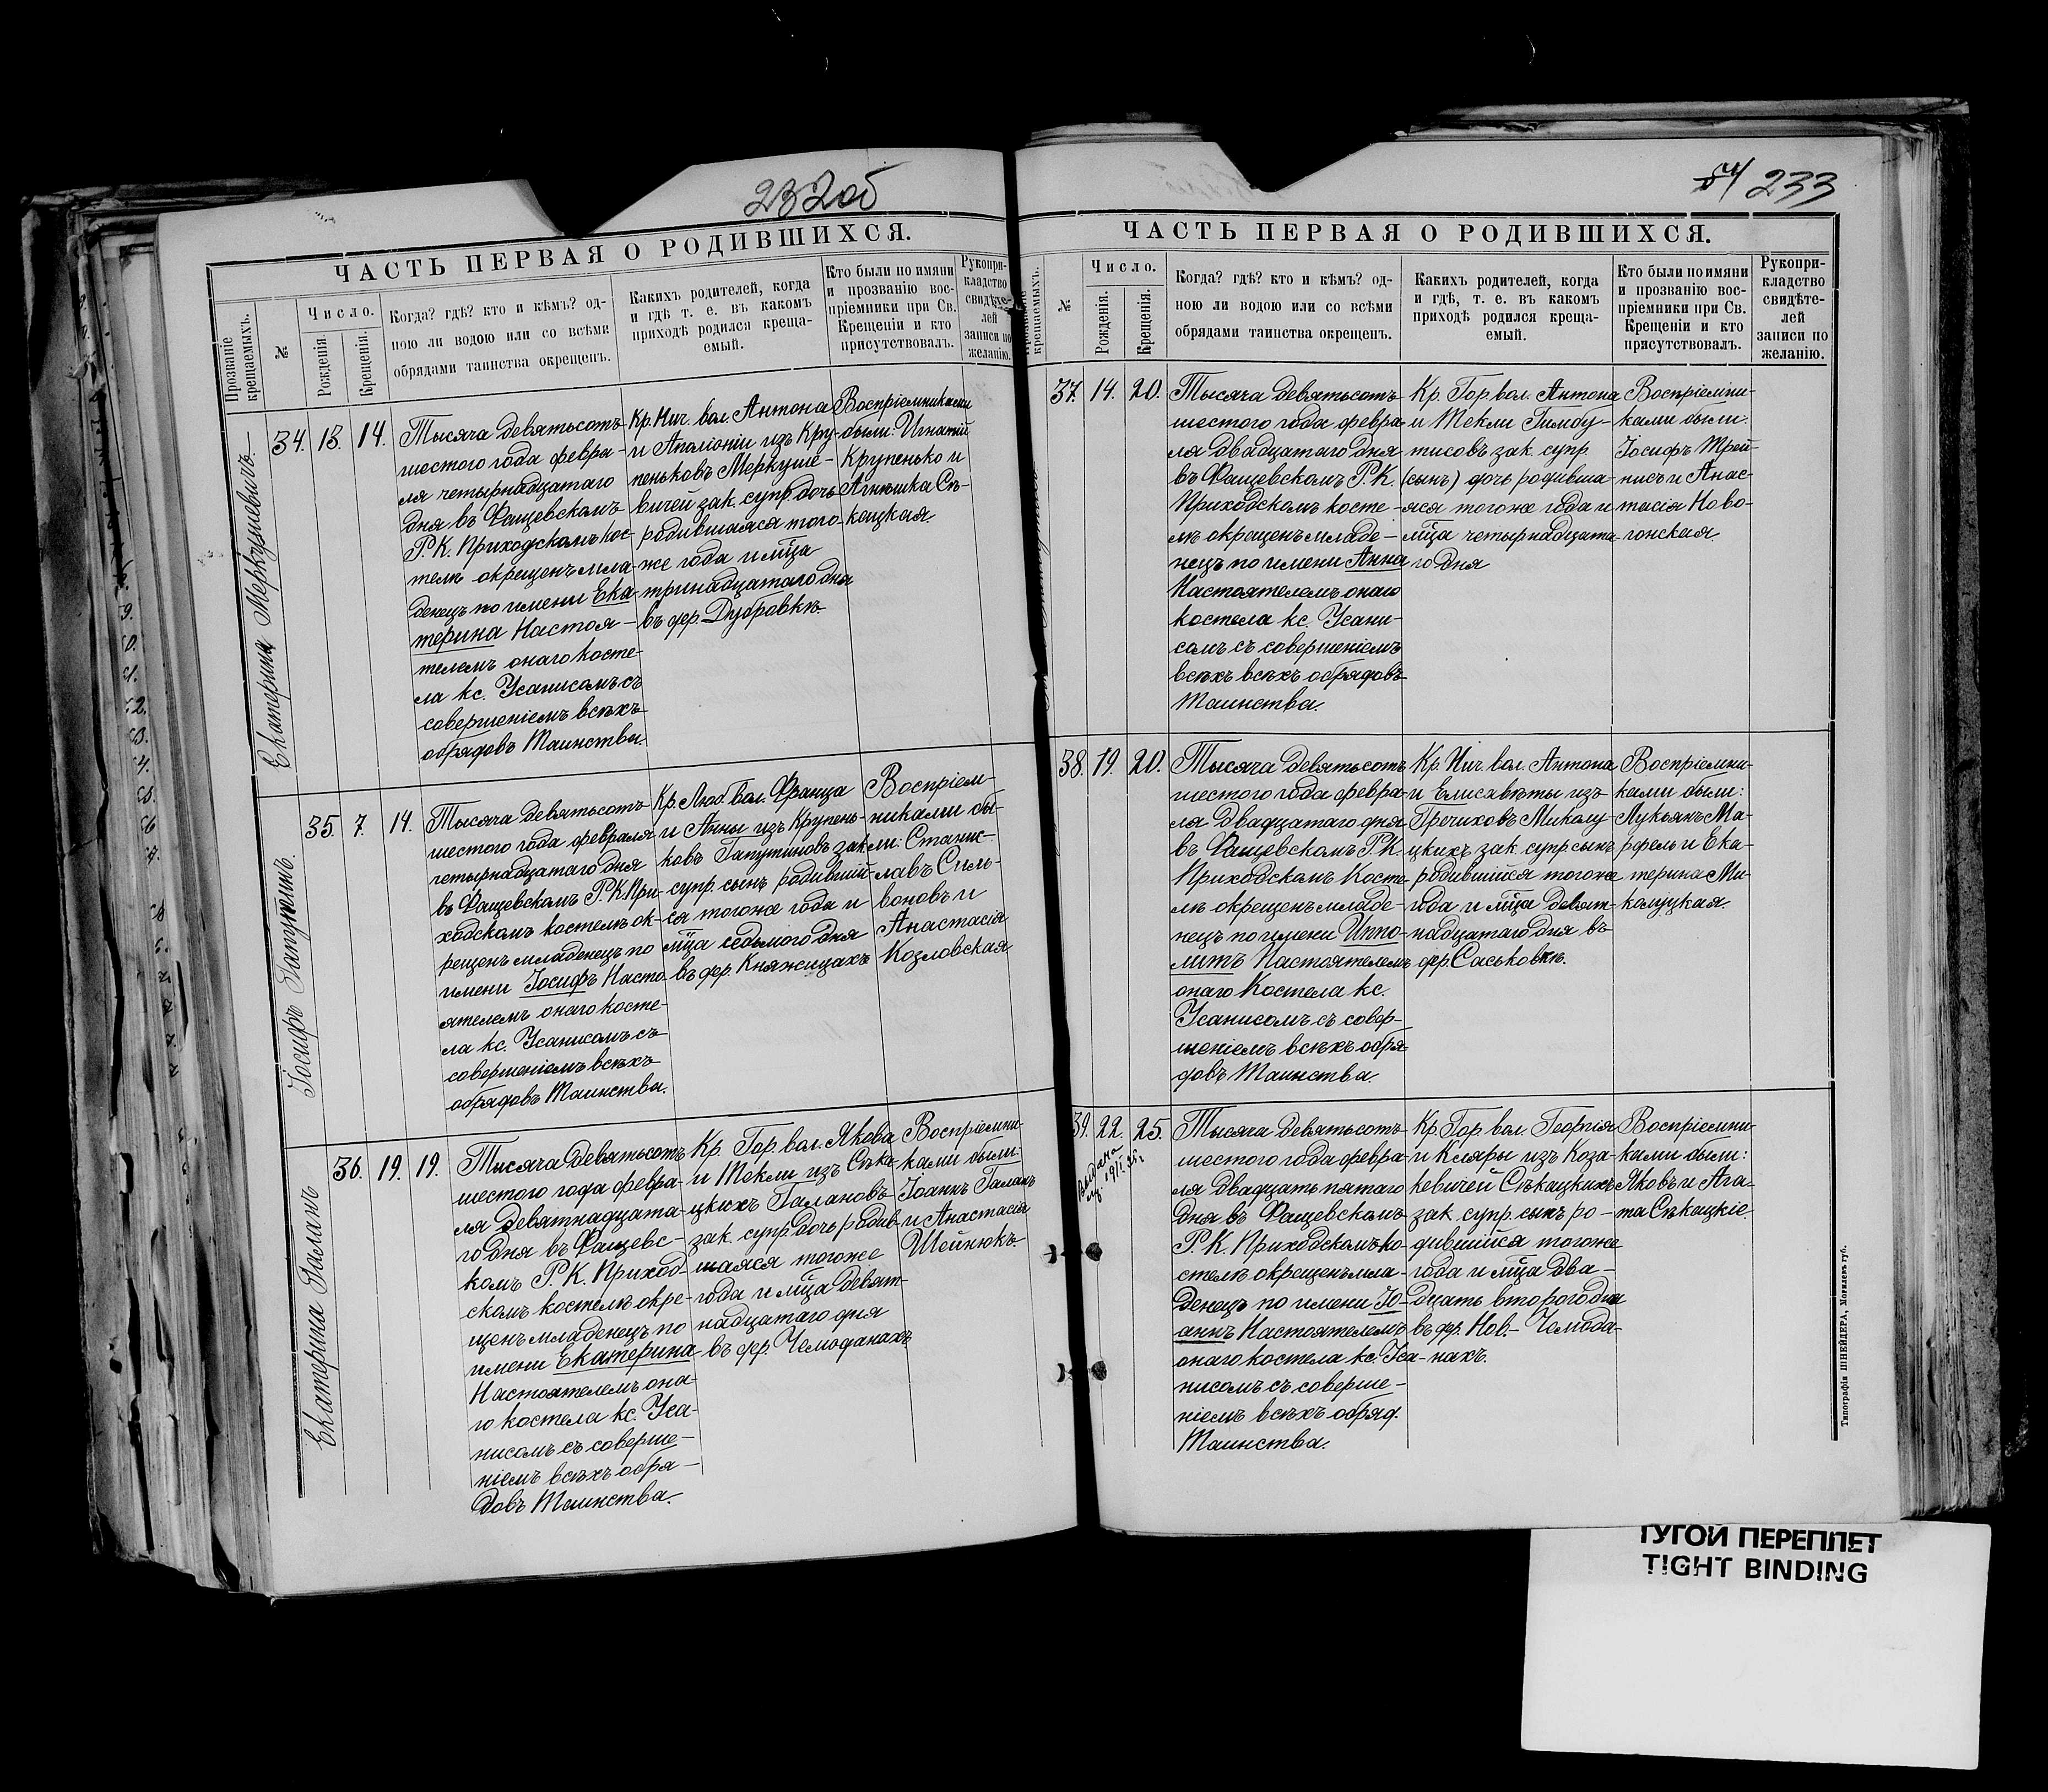 232об
ЧАСТЬ ПЕРВАЯ О РОДИВШИХСЯ.
Прозваніе крещаемыхъ.
№
Число.
Рожденія.
Крещенія.
Когда? гдѣ? кто и кѣмъ? од-
ною ли водою или со всѣми
обрядами таинства окрещенъ.
Какихъ родителей, когда
и гдѣ т. е. въ какомъ
приходѣ родился креща-
емый.
Кто были по имяни
и прозванію вос-
пріемники при Св.
Крещеніи и кто
присутствовалъ.
Рукопри-
кладство
свидѣте-
лей
записи по
желанію.
Екатерина Меркушевичъ.
34. 13. 14.
Тысяча девятьсотъ
шестого года февра-
ля четырнадцатаго
дня въ Фащевскомъ
Р. К. Приходскомъ кос-
телѣ окрещенъ мла-
денецъ по имени Ека-
терина Настоя-
телемъ онаго косте-
ла кс. Усанисомъ съ
совершеніемъ всѣхъ
обрядовъ Таинства.
Кр. Нич. вол. Антона
и Аполіоніи изъ Кру-
пеньковъ Меркуше-
вичей зак. супр. дочь
родившаяся того-
же года и мѣца
тринадцатаго дня
въ дер. Дубровкѣ
Воспріемниками
были: Игнатій
Крупенько и
Агнѣшка Сѣ-
кацкая.
Іосифъ Гапутинъ.
35. 7. 14.
Тысяча девятьсотъ
шестого года февраля
четырнадцатаго дня
въ Фащевскомъ Р. К. При-
ходскомъ костелѣ ок-
рещенъ младенецъ по
имени Іосифъ Насто-
ятелемъ онаго косте-
ла кс. Усанисомъ съ
совершеніемъ всѣхъ
обрядовъ Таинства.
Кр. Люб. вол. Франца
и Анны изъ Крупень-
ковъ Гапутиновъ зак.
супр. сынъ родившій-
ся тогоже года и
мѣца седьмого дня
въ дер. Княжицахъ
Воспріем-
никами бы-
ли: Станис-
лавъ Силь-
воновъ и
Анастасія
Козловская
Екатерина Галанъ
36. 19. 19.
Тысяча девятьсотъ
шестого года февра-
ля девятнадцата-
го дня въ Фащевс-
комъ Р. К. Приход-
скомъ костелѣ окре-
щенъ младенецъ по
имени Екатерина
Настоятелемъ она-
го костела кс. Уса-
нисомъ съ соверше-
ніемъ всѣхъ обря-
довъ Таинства.
Кр. Гор. вол. Якова
и Текли изъ Сѣка-
цкихъ Галановъ
зак. супр. дочь родив-
шаяся тогоже
года и мѣца девят-
надцатаго дня
въ дер. Чемоданахъ
Воспріемни-
ками были:
Іоаннъ Галанъ
и Анастасія
Шейнюкъ.
54 233
ЧАСТЬ ПЕРВАЯ О РОДИВШИХСЯ.
крещаемыхъ.
№
Число.
Рожденія.
Крещенія.
Когда? гдѣ? кто и кѣмъ? од-
ною ли водою или со всѣми
обрядами таинства окрещенъ.
Какихъ родителей, когда
и гдѣ, т. е. въ какомъ
приходѣ родился креща-
емый.
Кто были по имяни
и прозванію вос-
пріемники при Св.
Крещеніи и кто
присутствовалъ.
Рукопри-
кладство
свидѣте-
лей
записи по
желанію.
37. 14. 20.
Тысяча девятьсотъ
шестого года февра-
ля двадцатаго дня
въ Фащевскомъ Р. К.
Приходскомъ косте-
лѣ окрещенъ младе-
нецъ по имени Анна
Настоятелемъ онаго
костела кс. Усани-
сомъ съ совершеніемъ
всѣхъ всѣхъ обрядовъ
Таинства.
Кр. Гор. вол. Антона
и Текли Гимбу-
тисовъ зак. супр.
(сынъ) дочь родивша-
яся тогоже года и
мѣца четырнадцата-
го дня
Воспріемни-
ками были:
Іосифъ Трей-
нисъ и Анас-
тасія Ново-
гонская.
38. 19. 20.
Тысяча девятьсотъ
шестого года февра-
ля двадцатаго дня
въ Фащевскомъ Р. К.
Приходскомъ Косте-
лѣ окрещенъ младе-
нецъ по имени Иппо-
литъ Настоятелемъ
онаго Костела кс.
Усанисомъ съ совер-
шеніемъ всѣхъ обря-
довъ Таинства.
Кр. Нич. вол. Антона
и Елисавѣты изъ
Гречиховъ Миколу-
цкихъ зак. супр. сынъ
родившійся тогоже
года и мѣца девят-
надцатаго дня въ
дер. Саськовкѣ.
Воспріемни-
ками были:
Лукьянъ Ма-
рфель и Ека-
терина Ми-
колуцкая.
39. 22. 25.
Выдана
Тысяча девятьсотъ
шестого года февра-
ля двадцать пятаго
дня въ Фащевскомъ
Р. К. Приходскомъ ко-
стелѣ окрещенъ мла-
денецъ по имени Іо-
аннъ Настоятелемъ
онаго костела кс. Уса-
нисомъ съ соверше-
ніемъ всѣхъ обряд.
Таинства.
Кр. Гор. вол. Георгія
и Кляры изъ Коза-
кевичей Сѣкацкихъ
зак. супр. сынъ ро-
дившійся тогоже
года и мѣца два-
дцать второго дня
въ дер. Нов.- Чемода-
нахъ.
Воспріемни-
ками были:
Яковъ и Ага-
та Сѣкацкіе.
Типографія ШНЕЙДЕРА, Могилевъ губ.
ТУГОЙ ПЕРЕПЛЕТ
TIGHT BINDING